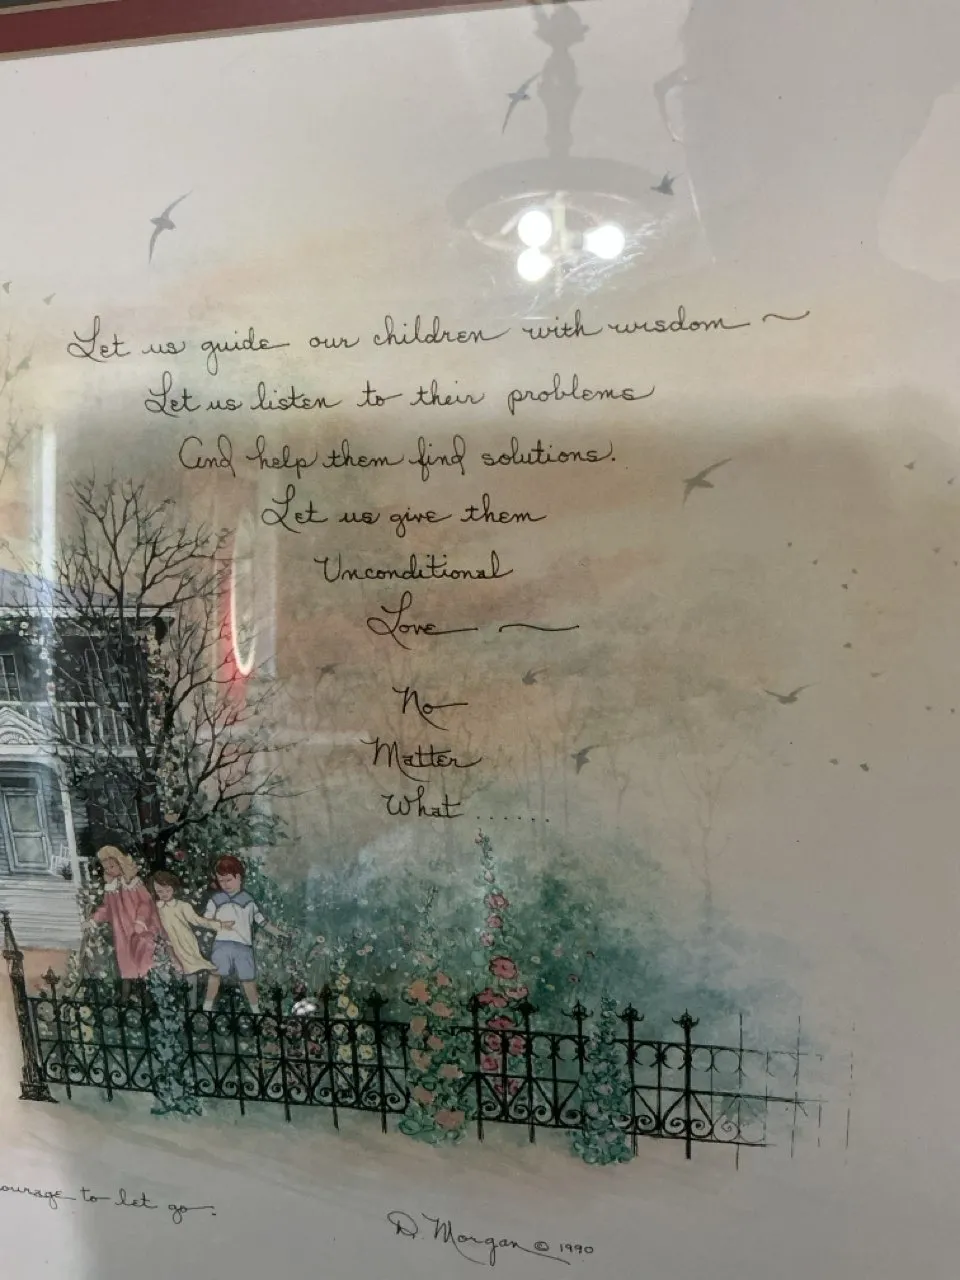 Let us guide our children with wisdom ~
Let us listen to their problems
And help them find solutions.
Let us give them
Unconditional
Love ~
No
Matter
What ......
ourage to let go.
D. Morgan © 1990